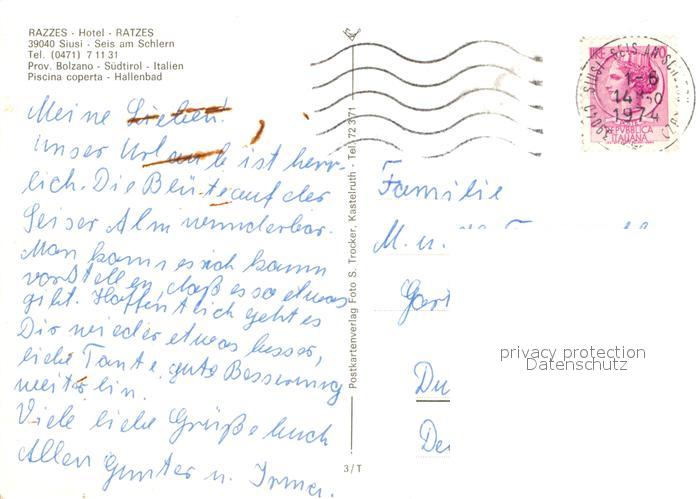 RAZZES - Hotel - RATZES
39040 Siusi - Seis am Schlern
Tel. (0471) 7 11 31
Prov. Bolzano - Südtirol - Italien
Piscina coperta - Hallenbad
Meine Lieben!
Unser Urlaub ist herr-
lich. Die Blüte auf der
Seiser Alm wunderbar.
Man kann es sich kaum
vorstellen, daß es so etwas
gibt. Hoffentlich geht es
Dir wieder etwas besser,
liebe Tante. gute Besserung
weiterhin.
Viele liebe Grüße Euch
Allen Gunter u. Irma.
Postkartenverlag Foto S. Trocker, Kastelruth - Tel. 72 3 71
3/T
39040 SIUSI - SEIS AM SCHLERN
1-6
14
1974
REPVBBLICA
ITALIANA
Familie
M. u.
Gart
Du
De
privacy protection
Datenschutz